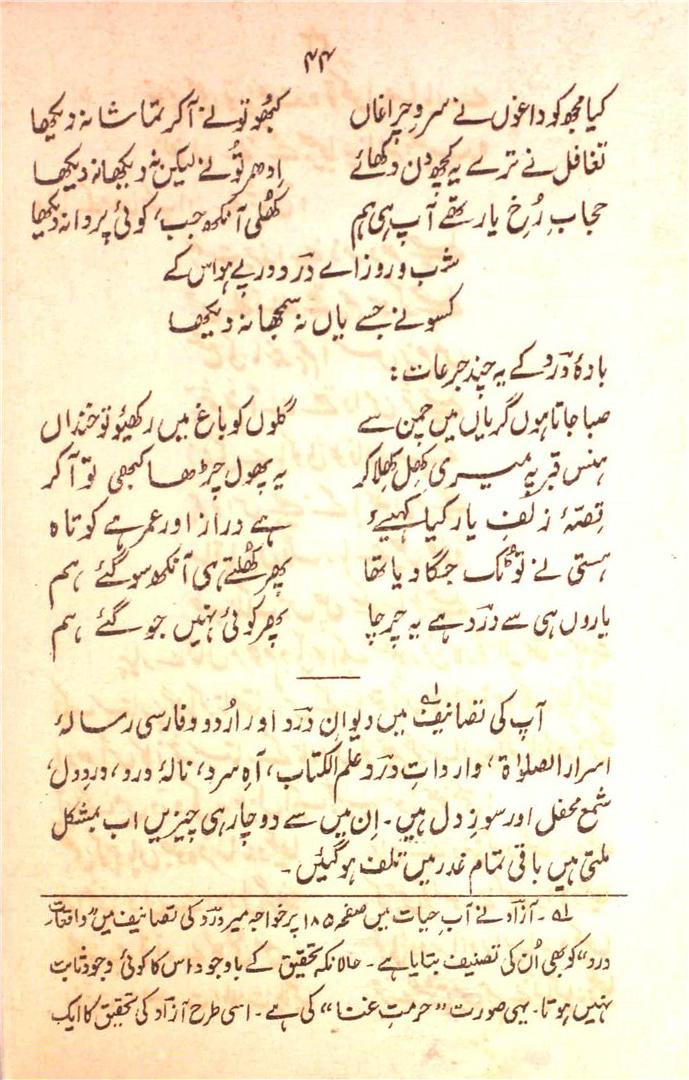 ۴۴
کیا مجھ کو داغوں نے سروِ چراغاں کبھُو تو نے آکر تماشا نہ دیکھا
تغافل نے ترے یہ کچھ دن دکھائے اِدھر تُو نے لیکن نہ دیکھا نہ دیکھا
حجابِ رُخِ یار تھے آپ ہی ہم کھُلی آنکھ جب، کوئی پردا نہ دیکھا
شب و روز اے دردؔ درپے ہو اس کے
کسو نے جسے یاں نہ سمجھا نہ دیکھا
بادۂ دردؔ کے یہ چند جرعات :
صبا جاتا ہوں گریاں میں چمن سے گلوں کو باغ میں رکھیو تو خنداں
ہنس قبر پہ میری کھِل کھِلا کر یہ پھول چڑھا کبھی تو آ کر
قصّۂ زلفِ یار کیا کہیے ہے دراز اور عمر ہے کوتاہ
ہستی نے تو ٹک جگا دیا تھا پھر کھُلتے ہی آنکھ سو گئے ہم
یاروں ہی سے دردؔ ہے یہ چرچا پھر کوئی نہیں جو گئے ہم
آپ کی تصانیف ۱ میں دیوانِ دردؔ اور اُردو و فارسی رسالۂ
اسرار الصلوٰۃ، وارداتِ دردؔ علم الکتاب، آہِ سرد، نالۂ درد، دردِ دل،
شمع محفل اور سوزِ دل ہیں۔ اِن میں سے دو چار ہی چیزیں اب بمشکل
ملتی ہیں باقی تمام غدر میں تلف ہوگئیں۔
۱ ۔ آزاد نے آبِ حیات میں صفحہ ۱۸۵ پر خواجہ میر دردؔ کی تصانیف میں "واقعات
درد" کو بھی اُن کی تصنیف بتایا ہے۔ حالانکہ تحقیق کے باوجود اس کا کوئی وجود ثابت
نہیں ہوتا۔ یہی صورت "حرمتِ غنا" کی ہے۔ اسی طرح آزاد کی تحقیق کا ایک